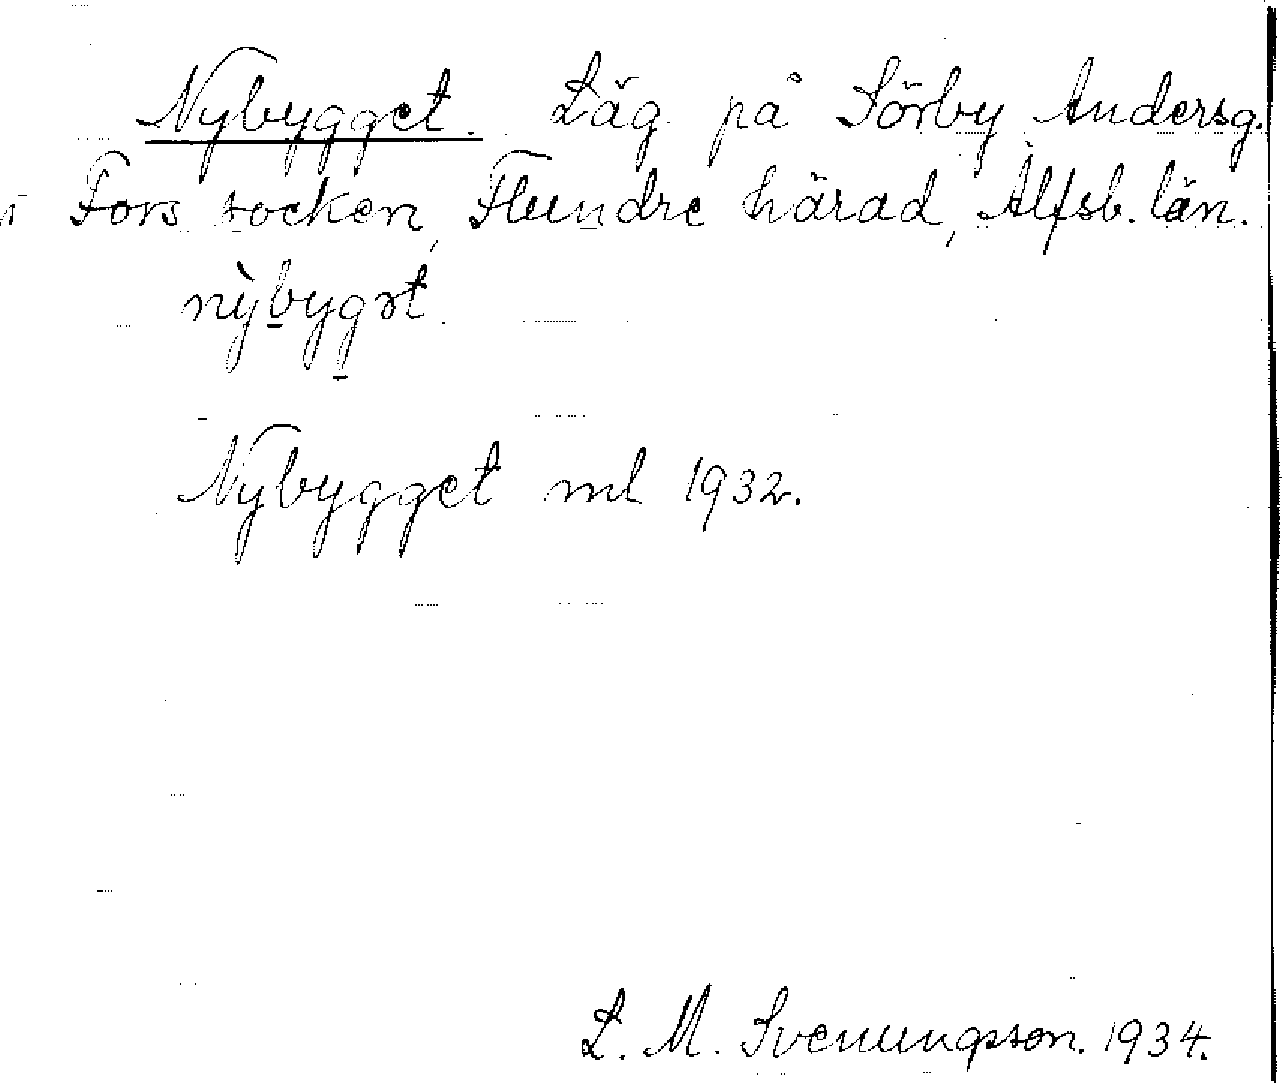 Nybygget. Läg på Sörby Andersg.
i Fors socken, Flundre härad, Älfsb. län.
nỳbygət.
Nybygget ml 1932.
L. M. Svenungsson. 1934.